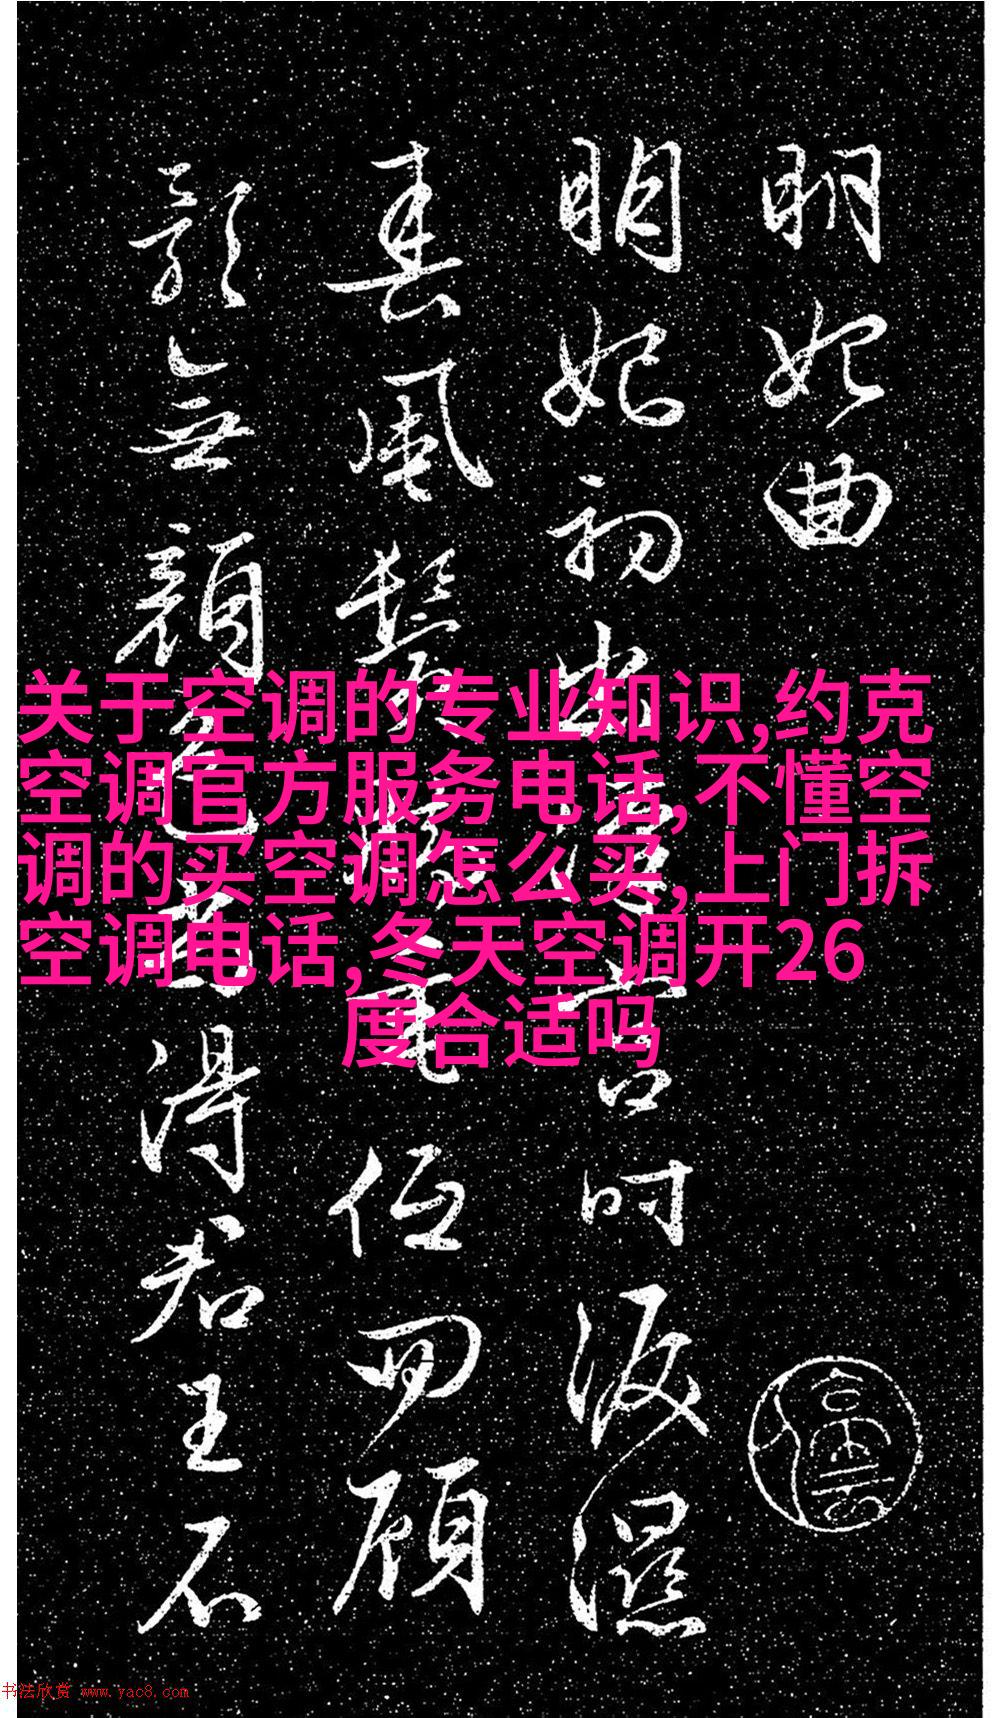 明妃曲
明妃初出漢宮時淚濕
春風鬢腳垂低回顧
影無顏色尚得君王不
关于空调的专业知识,约克
空调官方服务电话,不懂空
调的买空调怎么买,上门拆
空调电话,冬天空调开26
度合适吗
书法欣赏 www.yac8.com